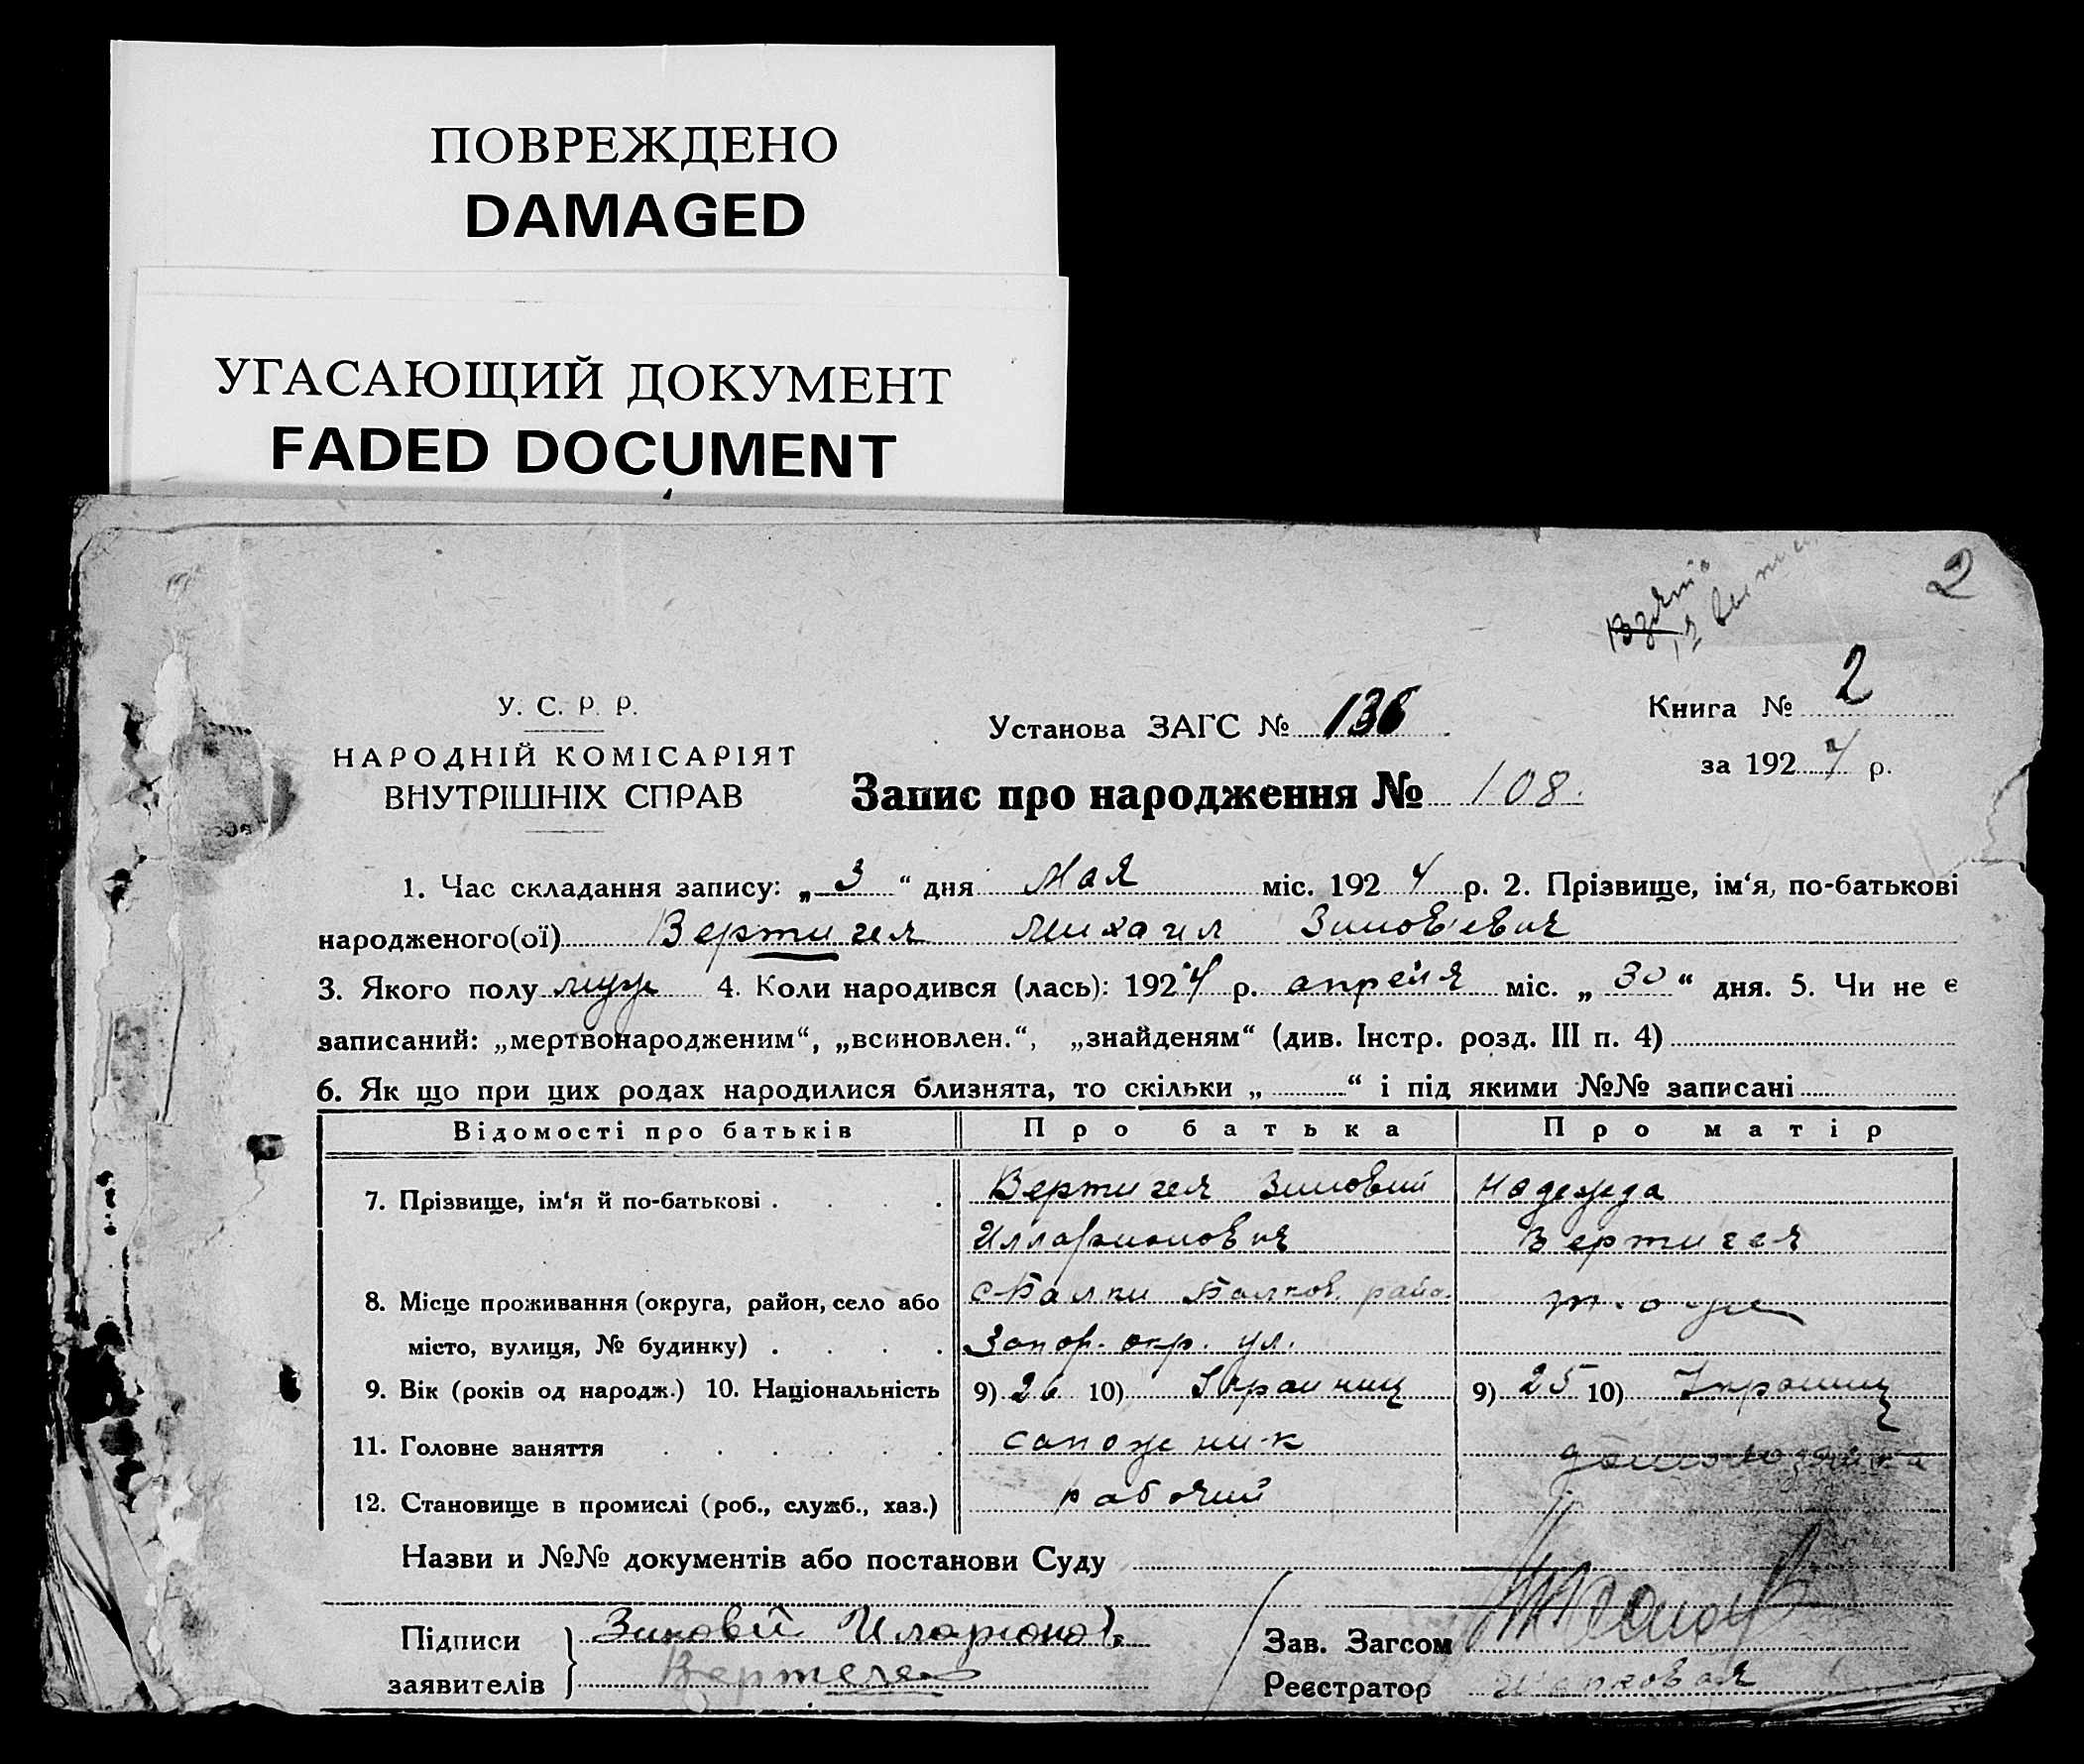 ПОВРЕЖДЕНО
DAMAGED
УГАСАЮЩИЙ ДОКУМЕНТ
FADED DOCUMENT
2
У. С. Р. Р.
НАРОДНІЙ КОМІСАРІЯТ
ВНУТРІШНІХ СПРАВ
Установа ЗАГС № 136
Запис про народження № 108.
Книга № 2
за 1924 р.
1. Час складання запису: „ 3 “ дня Мая міс. 1924 р. 2. Прізвище, ім‘я, по-батькові
народженого(ої) Вертигел Михаил Зиновьевич
3. Якого полу муж 4. Коли народився (лась): 1924 р. апреля міс. „ 30 “ дня. 5. Чи не є
записаний: „мертвонародженим“, „всиновлен.“, „знайденям“ (див. Інстр. розд. III п. 4)
6. Як що при цих родах народилися близнята, то скільки „ “ і під якими №№ записані
Відомості про батьків Про батька Про матір
7. Прізвище, ім‘я й по-батькові . . . . Вертигел Зиновий Надежда
Илларионович Вертигел
8. Місце проживання (округа, район, село або с Балки Балков. райо. то же
місто, вулиця, № будинку) . . . . Запор. окр. ул.
9. Вік (років од народж.) 10. Національність 9) 26 10) Украинец 9) 25 10) Украинц
11. Головне заняття . . . . . . сапожник домохозяйка
12. Становище в промислі (роб., служб., хаз.) рабочий
Назви и №№ документів або постанови Суду
Підписи Зиновій Иларіонов. Зав. Загсом
заявителів Вертелел Реєстратор